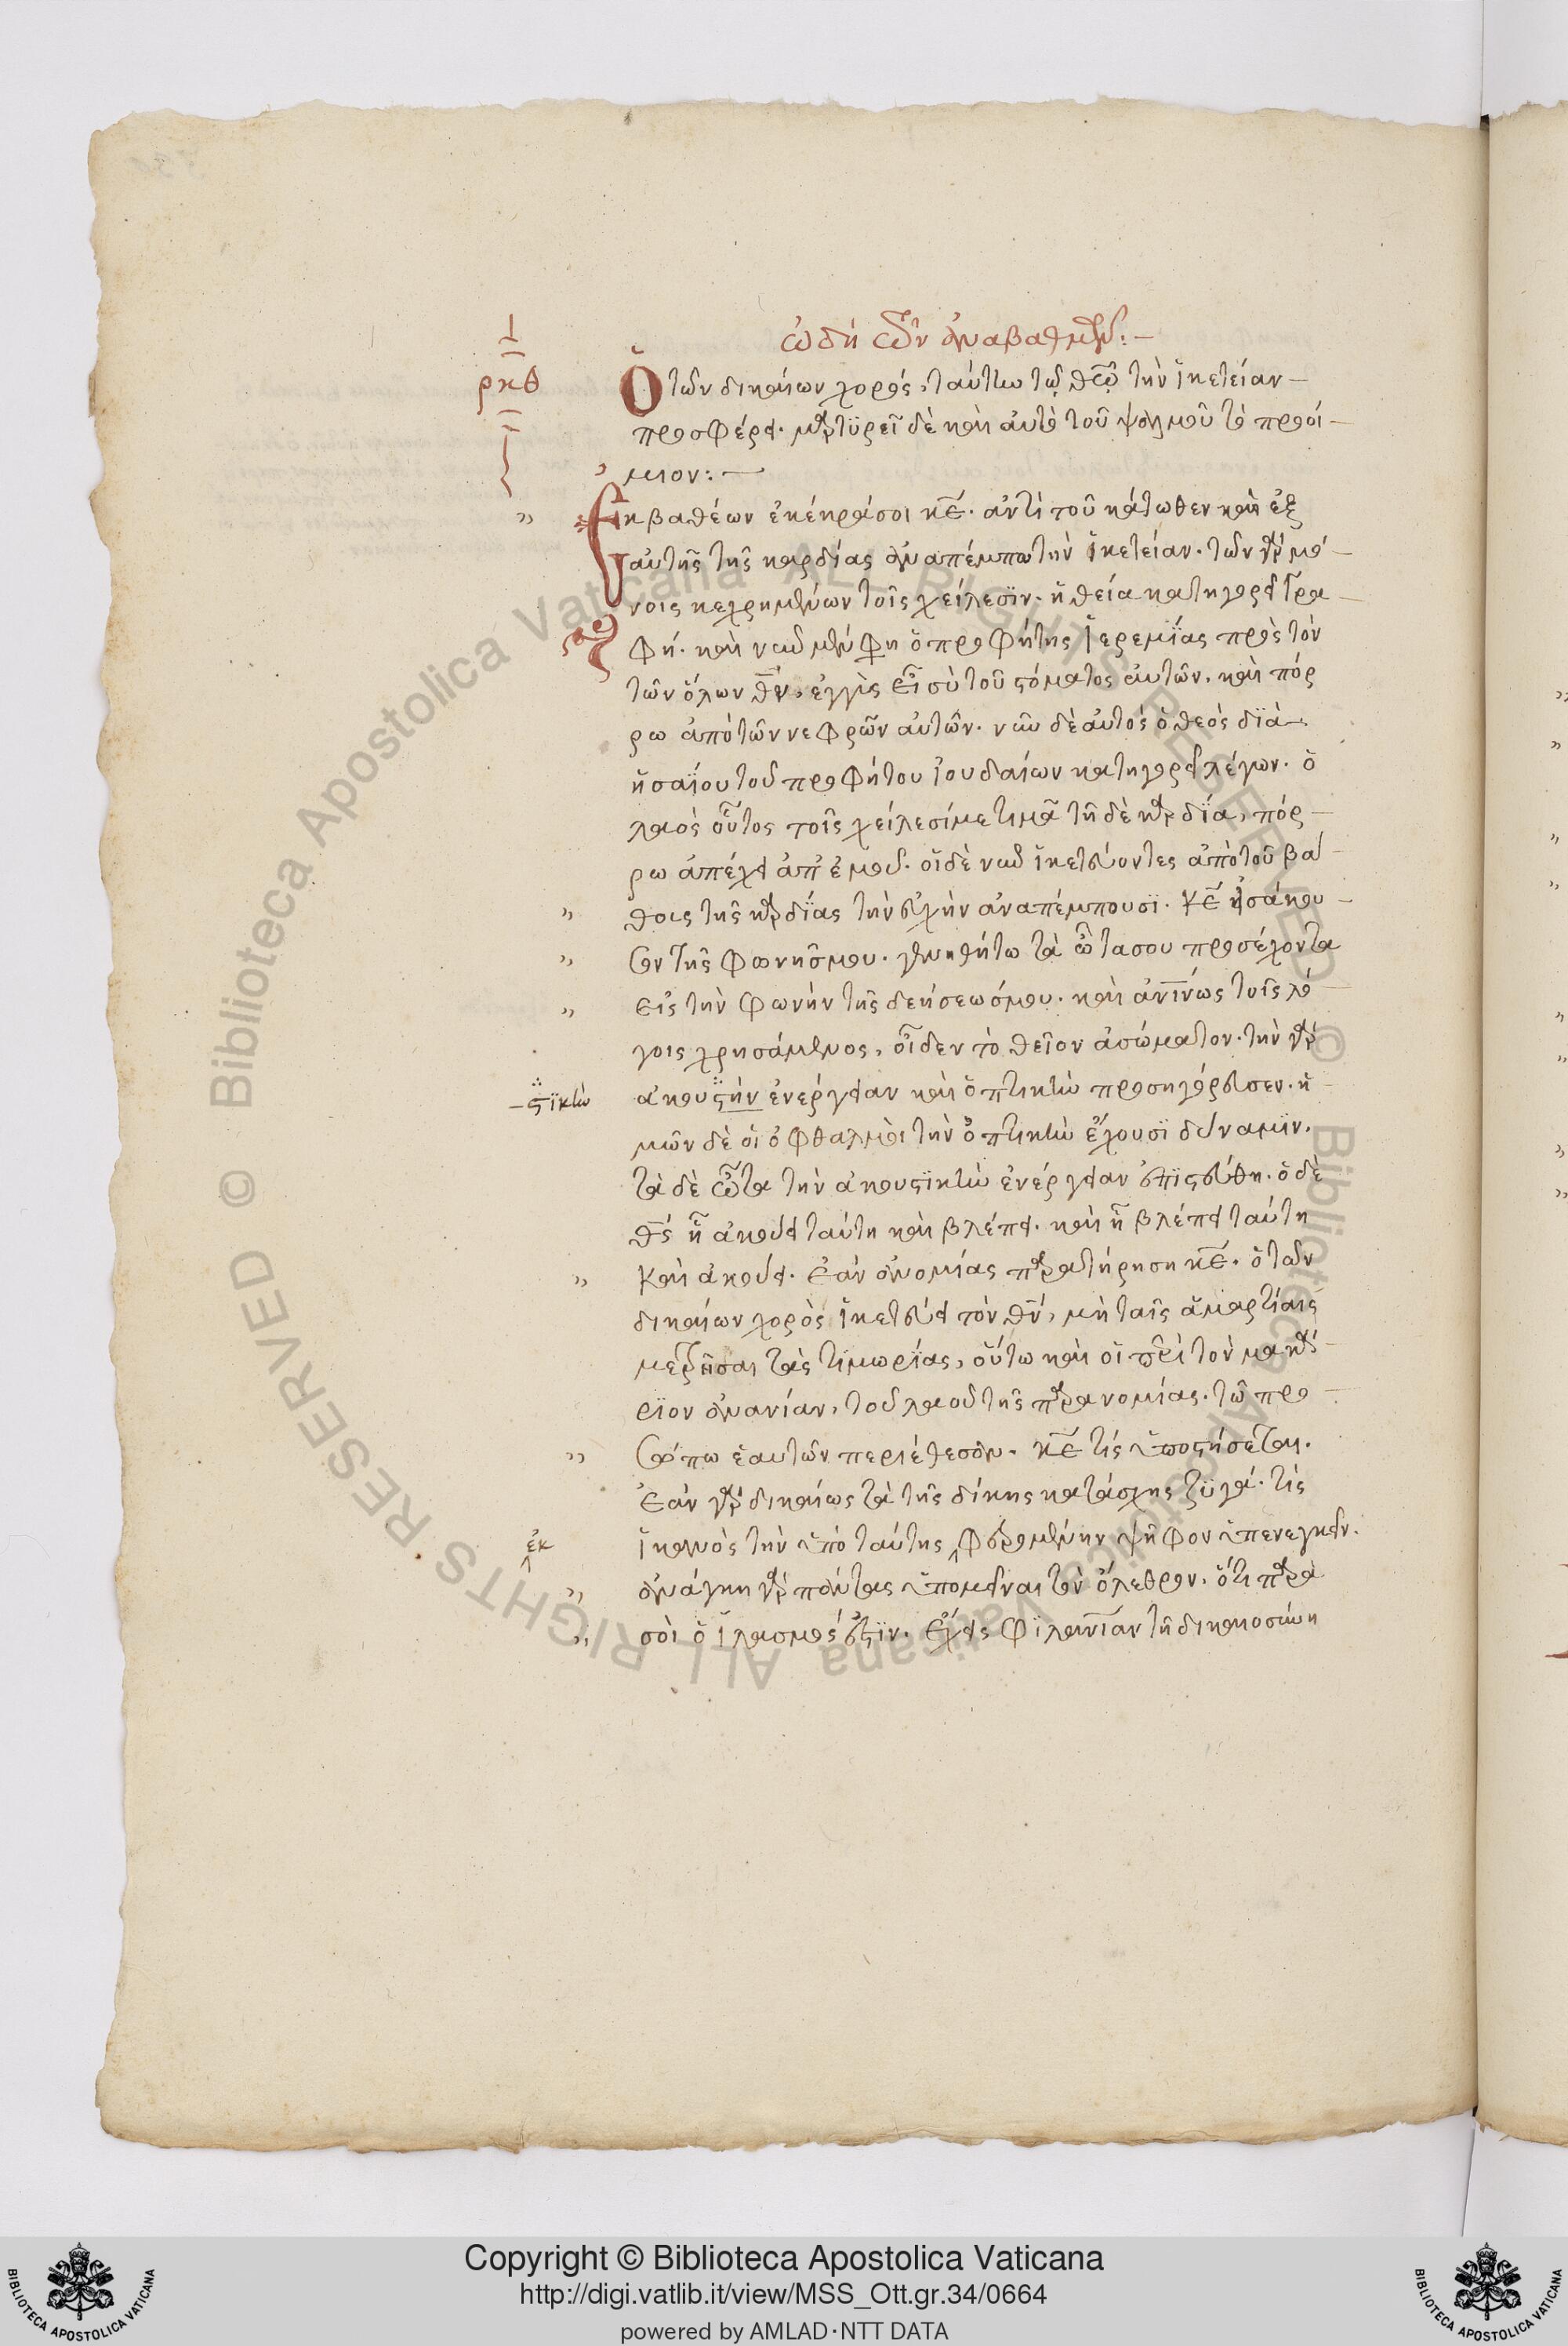 ὠδὴ τῶν ἀναβαθμῶν:—
ρκθ
Ὁ τῶν δικαίων χορός, ταύτην τῷ θεῷ τὴν ἱκετείαν—
προσφέρει. μαρτυρεῖ δὲ καὶ αὐτὸ τοῦ ψαλμοῦ τὸ προοί—
μιον:—
Ἐκ βαθέων ἐκέκραξά σοι κε. ἀντὶ τοῦ κάτωθεν καὶ ἐξ
αὐτῆς τῆς καρδίας ἀναπέμπω τὴν ἱκετείαν. τῶν γὰρ μό—
νοις κεχρημένων τοῖς χείλεσϊν. ἡ θεία κατηγορεῖ γρα—
φή. καὶ νῦν μέν φη ὁ προφήτης ἱερεμίας πρὸς τὸν
τῶν ὅλων θν, ἐγγὺς εἶ σὺ τοῦ στόματος αὐτῶν. καὶ πόρ
ρω ἀπὸ τῶν νεφρῶν αὐτῶν. νῦν δὲ αὐτὸς ὁ θεὸς διὰ—
ἡσαΐου τοῦ προφήτου ἰουδαίων κατηγορεῖ λέγων. ὁ
λαὸς οὗτος τοῖς χείλεσί με τιμᾶ τῆ δὲ καρδία, πόρ—
ρω ἀπέχει ἀπ' ἐμοῦ. οἱ δὲ νῦν ἱκετεύοντες ἀπὸ τοῦ βά—
θους τῆς καρδίας τὴν εὐχὴν ἀναπέμπουσϊ. κε εἰσάκου—
σον τῆς φωνῆς μου. γενηθήτω τὰ ὦτα σου προσέχοντα
εἰς τὴν φωνὴν τῆς δεήσεώς μου. καὶ ἀνίνως τοῖς λό—
γοις χρησάμενος, οἶδεν τὸ θεῖον ἀσώματον. τὴν γὰρ
—στϊκὴν
ἀκουστὴν ἐνέργειαν καὶ ὀπτικὴν προσηγόρευσεν. ἡ—
μῶν δὲ οἱ ὀφθαλμοὶ τὴν ὀπτικὴν ἔχουσϊ δύναμϊν.
τὰ δὲ ὦτα τὴν ἀκουστϊκὴν ἐνέργειαν ἐπϊστεύθη. ὁ δὲ
θς ἧ ἀκούει ταύτη καὶ βλέπει. καὶ ἧ βλέπει ταύτη
καὶ ἀκούει. ἐὰν ἀνομίας παρατήρηση κε. ὁ τῶν
δικαίων χορὸς ἱκετεύει τὸν θν, μὴ ταῖς ἁμαρτίαις
μετρῆσαι τὰς τϊμωρίας, οὕτω καὶ οἱ περὶ τὸν μακά—
ρϊον ἀνανίαν, τοῦ λαοῦ τῆς παρανομίας. τῶ προ—
σώπω ἑαυτῶν περιέθεσαν. κε τίς ὑποστήσεται.
ἐὰν γὰρ δικαίως τὰ τῆς δίκης κατάσχης ζϋγά. τίς
ἐκ
ἱκανὸς τὴν ὑπὸ ταύτης φερομένην ψῆφον ὑπενεγκεῖν.
ἀνάγκη γὰρ πάντας ὑπομεῖναι τὸν ὄλεθρον. ὅτι παρὰ
σοὶ ὁ ἱλασμός ἐστϊν. ἔχεις φϊλανίαν τῆ δικαιοσύνη
Copyright © Biblioteca Apostolica Vaticana
http://digi.vatlib.it/view/MSS_Ott.gr.34/0664
powered by AMLAD·NTT DATA